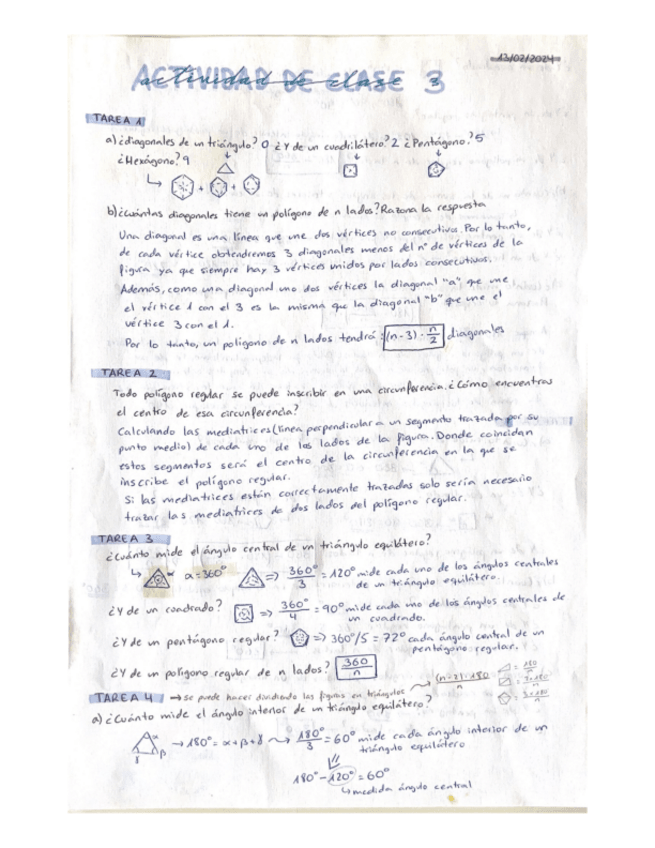 13/02/2024
ACTIVIDAD DE CLASE 3
actividad de clase
TAREA 1
a) ¿diagonales de un triángulo? 0 ¿Y de un cuadrilátero? 2 ¿Pentágono? 5
¿Hexágono? 9
+ +
b) ¿cuántas diagonales tiene un polígono de n lados? Razona la respuesta
Una diagonal es una línea que une dos vértices no consecutivos. Por lo tanto,
de cada vértice obtendremos 3 diagonales menos del nº de vértices de la
figura ya que siempre hay 3 vértices unidos por lados consecutivos.
Además, como una diagonal une dos vértices la diagonal "a" que une
el vértice 1 con el 3 es la misma que la diagonal "b" que une el
vértice 3 con el 1.
Por lo tanto, un polígono de n lados tendrá: (n-3) · n/2 diagonales
TAREA 2
Todo polígono regular se puede inscribir en una circunferencia. ¿Cómo encuentras
el centro de esa circunferencia?
Calculando las mediatrices (línea perpendicular a un segmento trazada por su
punto medio) de cada uno de los lados de la figura. Donde coincidan
estos segmentos será el centro de la circunferencia en la que se
inscribe el polígono regular.
Si las mediatrices están correctamente trazadas solo sería necesario
trazar las mediatrices de dos lados del polígono regular.
TAREA 3
¿Cuánto mide el ángulo central de un triángulo equilátero?
α = 360° => 360°/3 = 120° mide cada uno de los ángulos centrales
de un triángulo equilátero.
¿Y de un cuadrado? => 360°/4 = 90° mide cada uno de los ángulos centrales de
un cuadrado.
¿Y de un pentágono regular? => 360°/5 = 72° cada ángulo central de un
pentágono regular.
¿Y de un polígono regular de n lados? 360/n
(n-2)·180/n
= 180/n
= 2·180/n
= 3·180/n
TAREA 4 → se puede hacer dividiendo las figuras en triángulos
a) ¿Cuánto mide el ángulo interior de un triángulo equilátero?
α β γ → 180° = α+β+γ 180°/3 = 60° mide cada ángulo interior de un
triángulo equilátero
180° - 120° = 60°
medida ángulo central